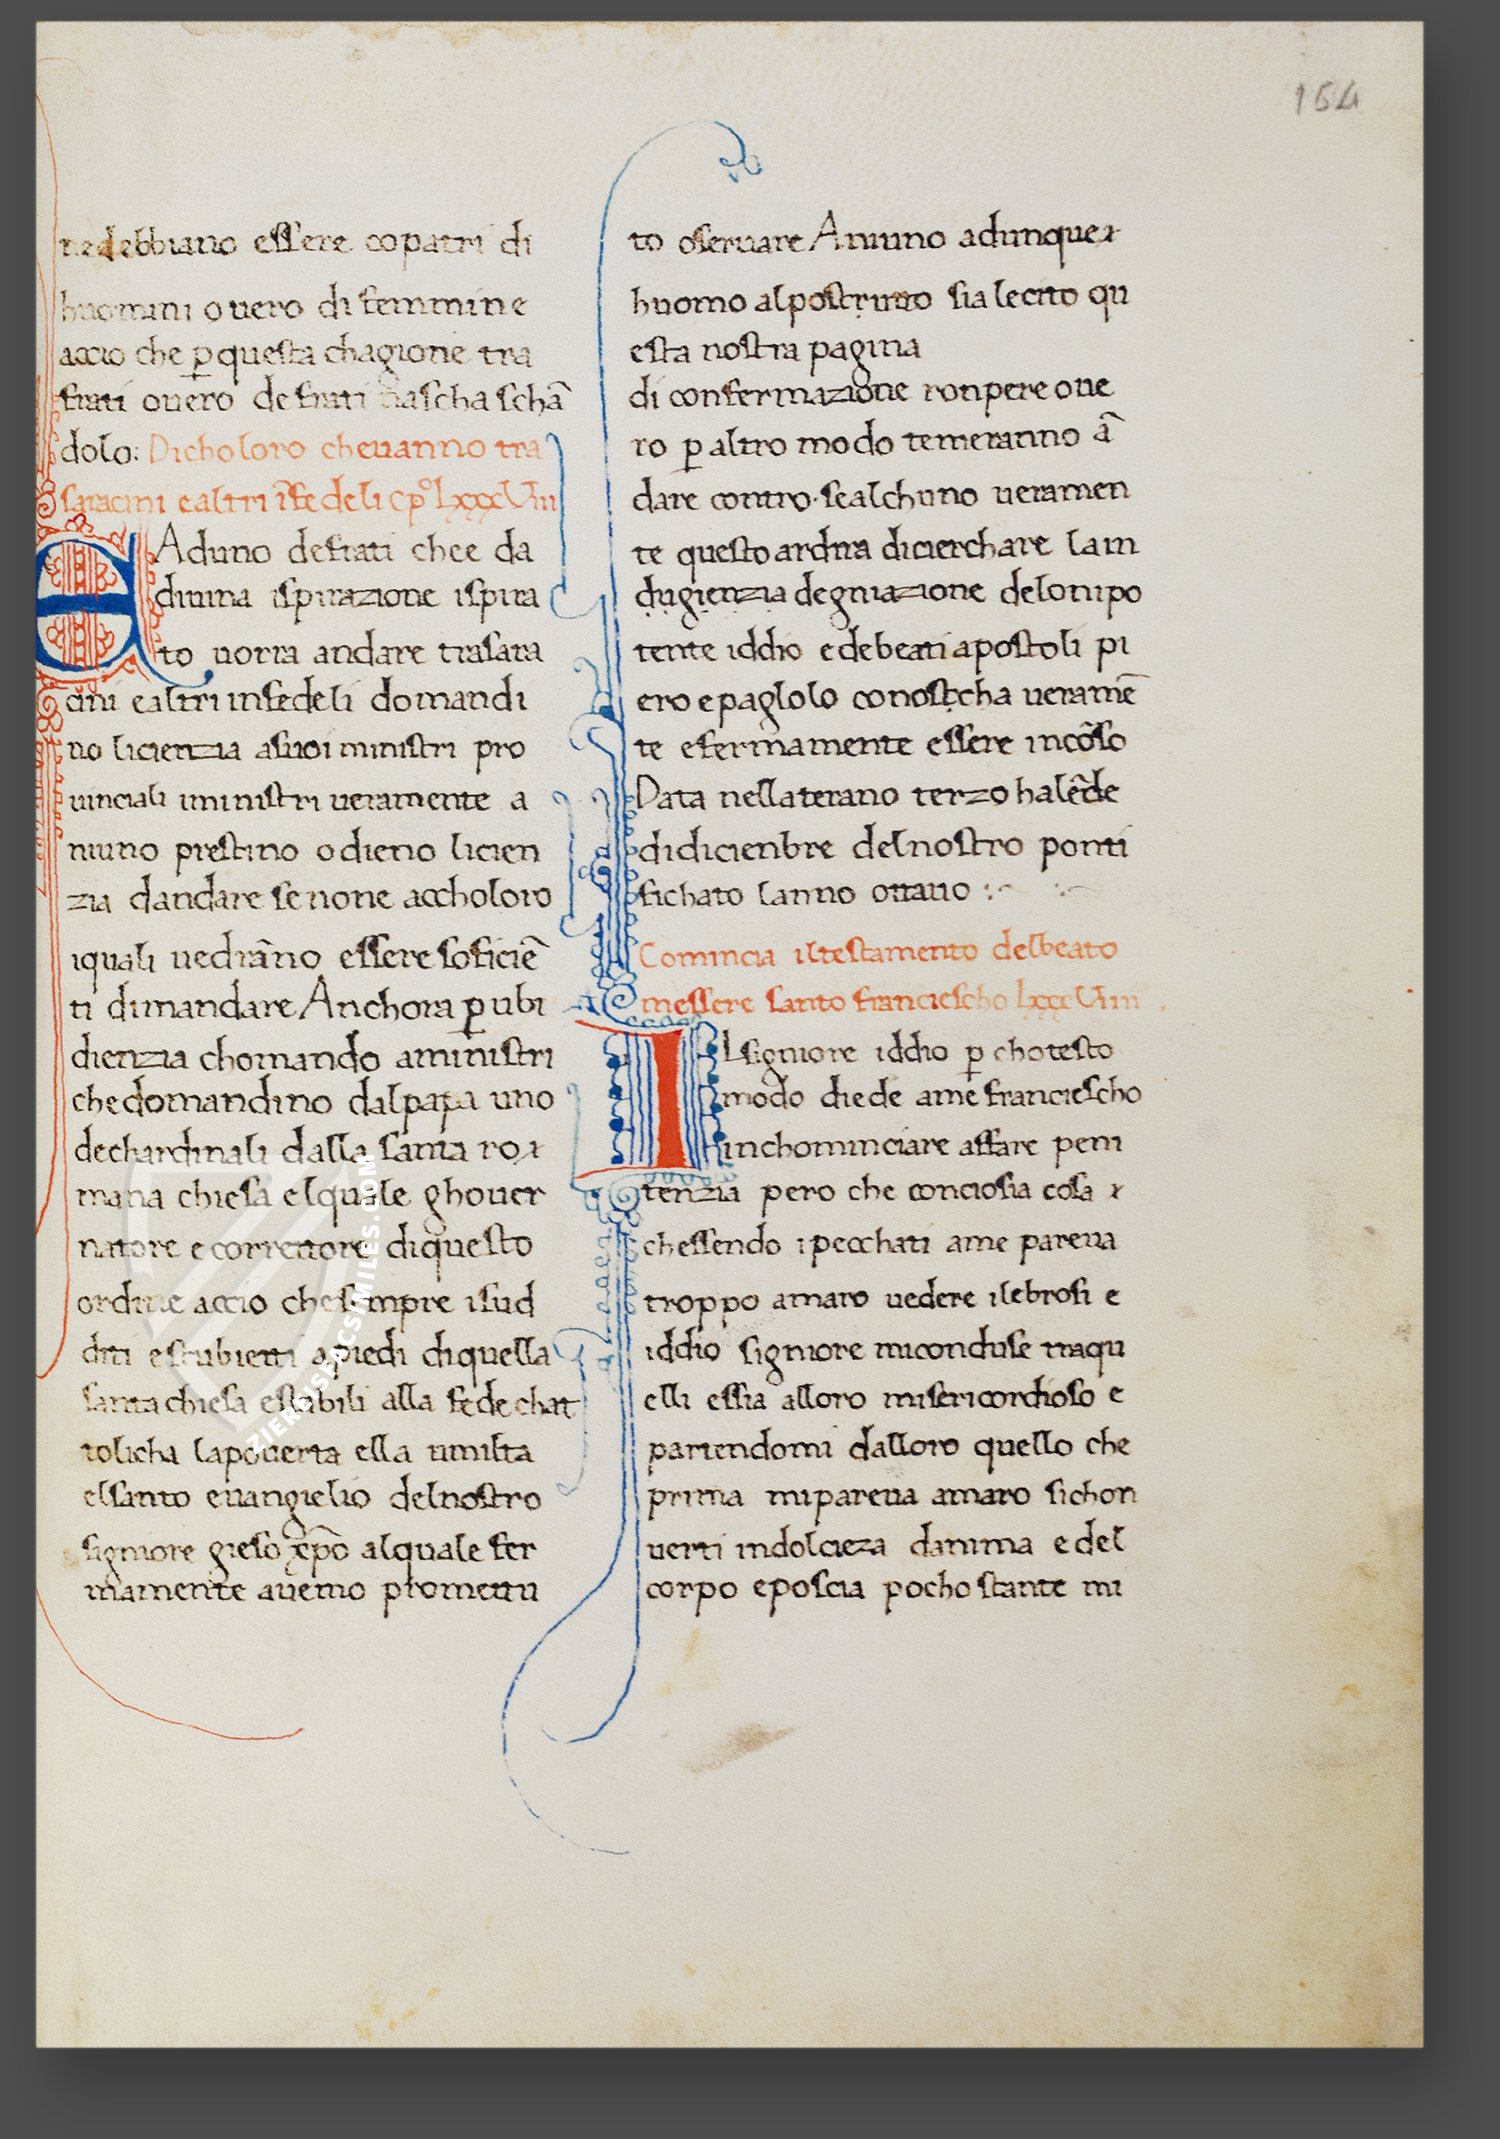 164
ne debbiano essere copatri di
huomini overo di femmine
accio che p questa chagione tra
frati overo de frati nascha schā
dolo: Dicholoro chevanno tra
saracini e altri īfedeli cpº lxxxViii
EAduno defrati chee da
divina ispirazione ispira
to vorra andare trasara
cini e altri infedeli domandi
no licienzia asuoi ministri pro
vinciali iministri veramente a
niuno prestino o dieno licien
zia dandare se none accholoro
iquali vedrāno essere soficiē
ti di mandare Anchora p ubi
dienzia chomando aministri
che domandino dal papa uno
dechardinali dalla santa ro
mana chiesa elquale ghover
natore e correttore di questo
ordine accio che sempre isud
diti e subietti apiedi diquella
santa chiesa estabili alla fede chat
tolicha la poverta ella umilta
elsanto evangielio delnostro
signiore gieso xpō alquale fer
mamente avemo promettu
to oservare Aniuno adunque
huomo al postutto sia lecito qu
esta nostra pagina
di confermazione ronpere ove
ro p altro modo temeranno ā
dare contro · se alchuno veramen
te questo ardira dicierchare la in
dugienzia degniazione delonipo
tente iddio e de beati apostoli pi
ero e paglolo conoscha veramē
te e fermamente essere incōso
Data nellaterano terzo halēde
di dicienbre delnostro ponti
fichato lanno ottavo :~ :~
Comincia iltestamento delbeato
messere santo franciescho lxxxViiii
ILsigniore iddio p chotesto
modo diede ame franciescho
inchominciare affare peni
tenzia pero che conciosia cosa
chessendo ipecchati ame pareva
troppo amaro vedere ilebrosi e
iddio signiore miconduse traqu
elli essia alloro misericordioso e
partendomi dalloro quello che
prima mipareva amaro sichon
verti indolcieza danima e del
corpo e poscia pocho stante mi
ZIEREISFACSIMILES.COM